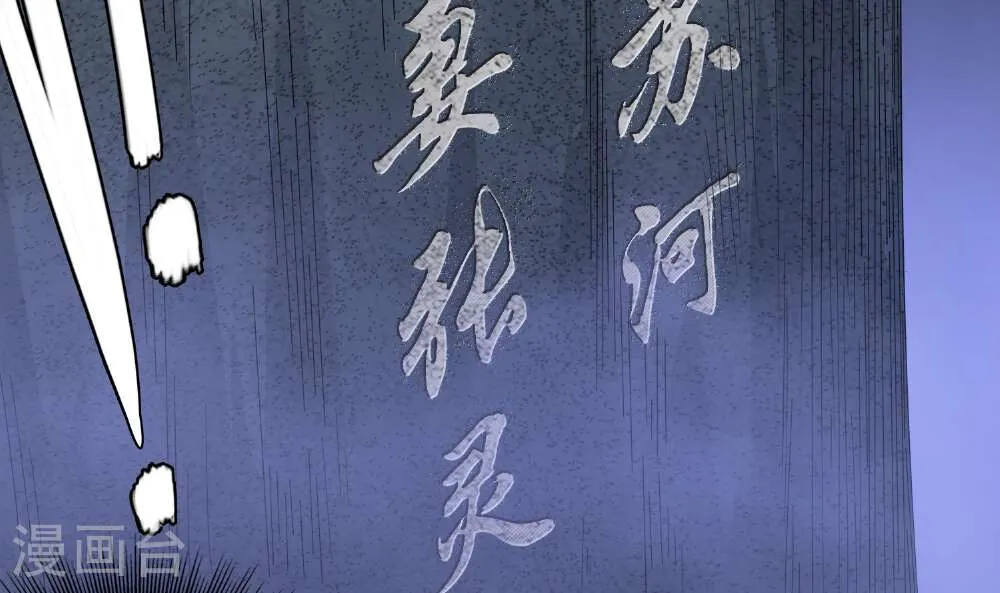 苏河
妻张灵
!!
漫画台